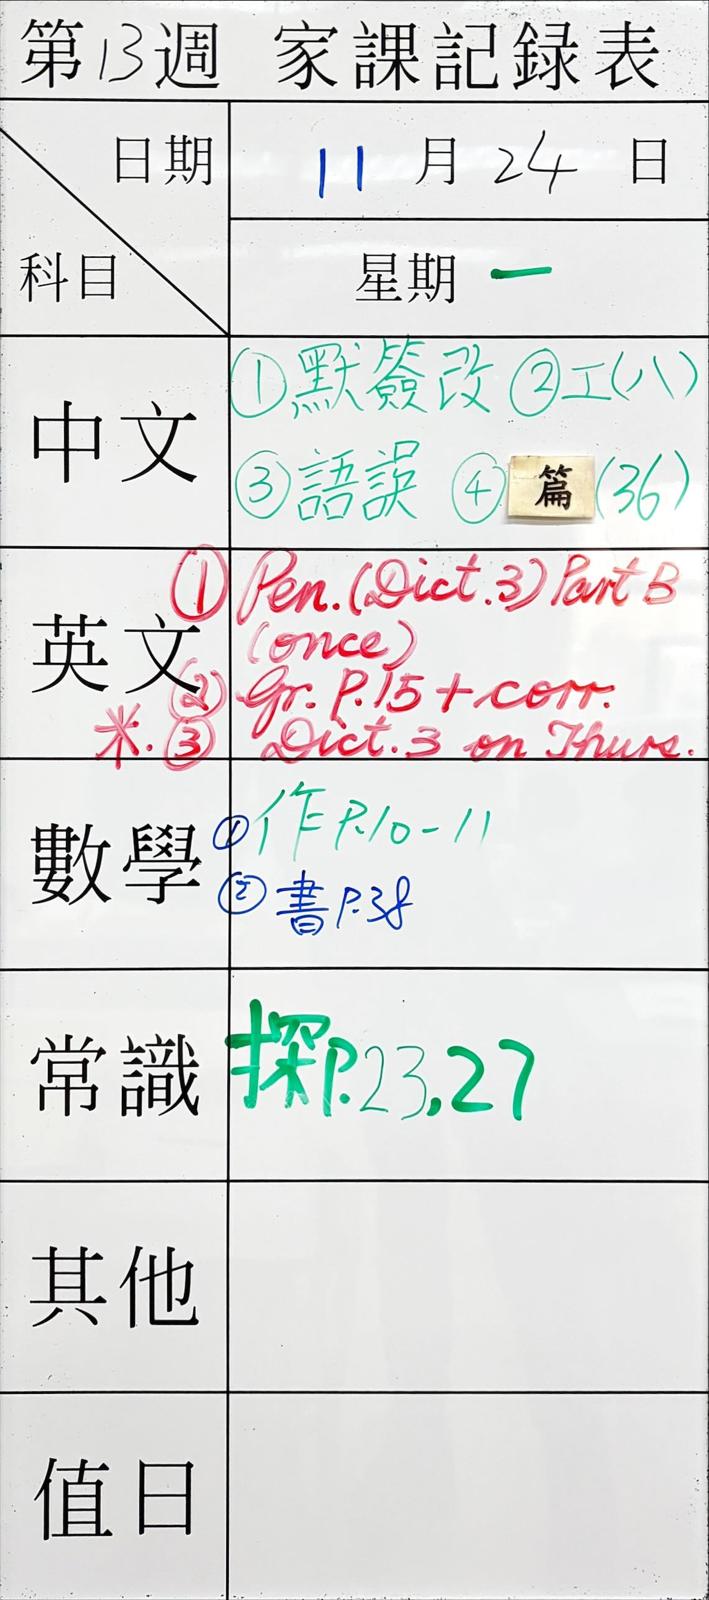 第13週 家課記録表
日期 11月24日
科目 星期一
中文 ①默簽改 ②工(八)
③語誤 ④篇(36)
英文 ① Pen. (Dict.3) Part B
(once)
(2) Gr. P.15 + corr.
*. ③ Dict.3 on Thurs.
數學 ①作P.10-11
②書P.38
常識 探P.23,27
其他
值日